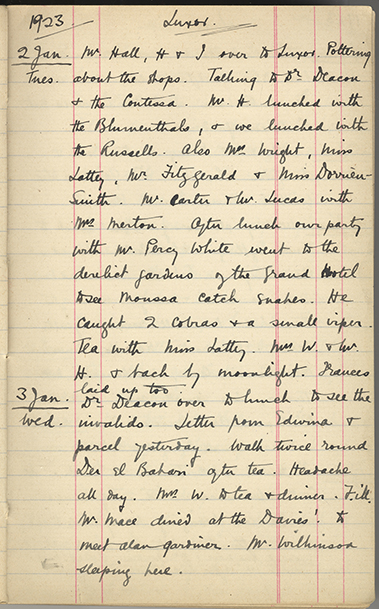 1923. Luxor.
2 Jan. Mr. Hall, H & I over to Luxor. Pottering
Tues. about the shops. Talking to Dr. Deacon
& the Contessa. Mr. H. lunched with
the Blumenthals, & we lunched with
the Russells. Also Mrs Wright, Miss
Lattey, Mr. Fitzgerald & Miss Dorrien-
Smith. Mr. Carter & Mr. Lucas with
Mrs Merton. After lunch our party
with Mr. Percy White went to the
derelict gardens of the Grand Hotel
to see Moussa catch snakes. He
caught 2 cobras & a small viper.
Tea with Miss Lattey. Mrs W. & Mr.
H. & back by moonlight. Frances
laid up too.
3 Jan. Dr. Deacon over to lunch to see the
Wed. invalids. Letter from Edwina &
parcel yesterday. Walk twice round
Der El Bahari after tea. Headache
all day. Mrs. W. to tea & dinner. F. ill.
Mr. Mace dined at the Davies'. to
meet Alan Gardiner. Mr. Wilkinson
sleeping here.